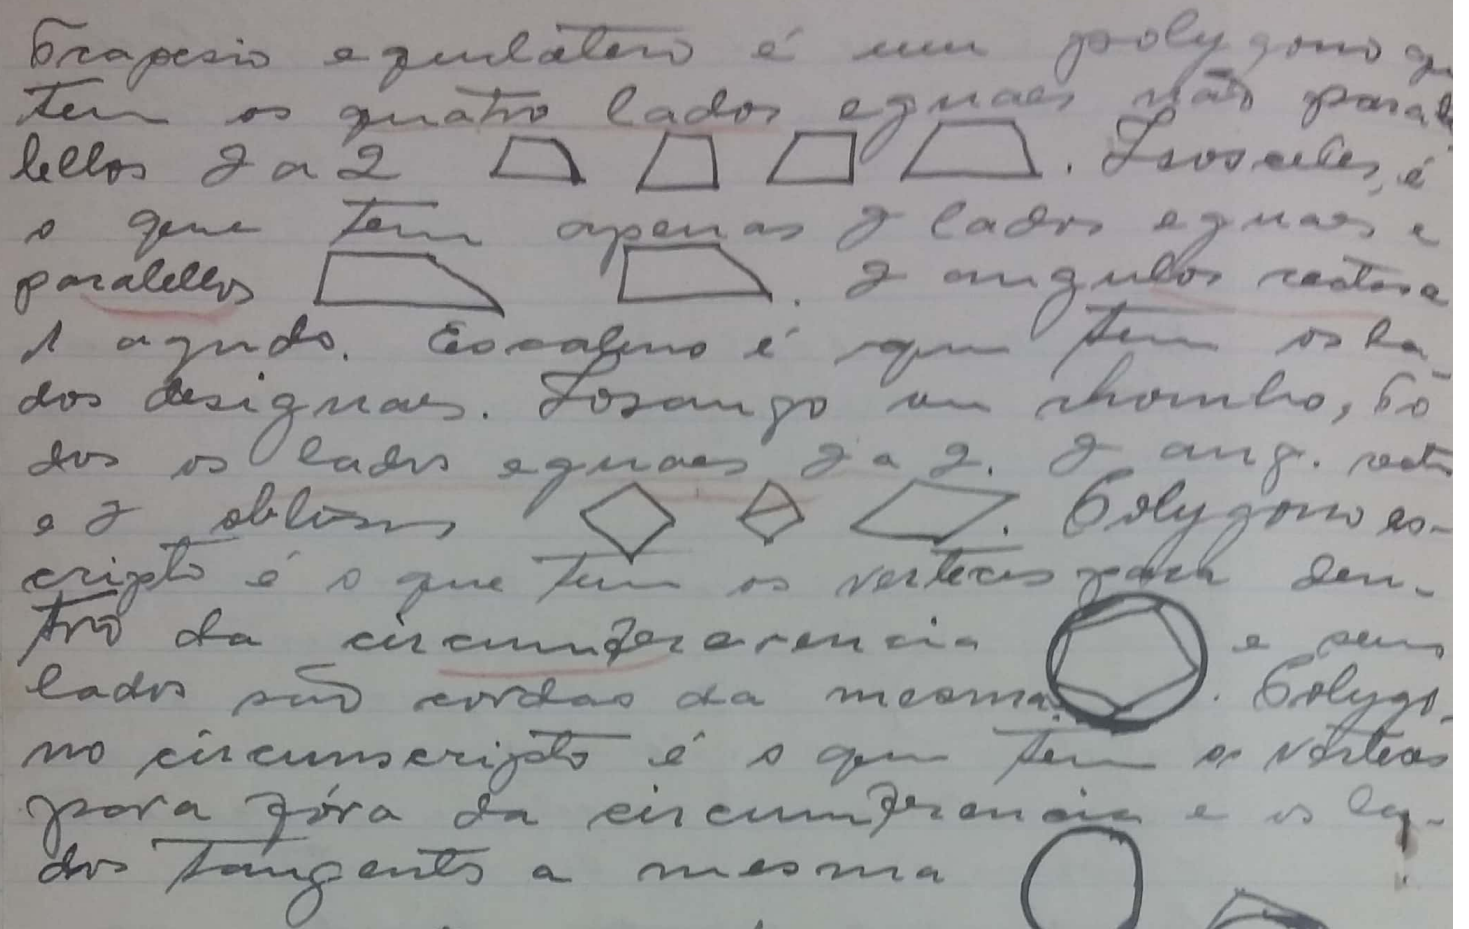 Trapesio equilátero é um polygono qu
tem os quatro lados eguaes não paral
lellos 2 a 2. Isosceles, é
o que tem apenas 2 lados eguaes e
paralellos. 2 angulos rectos e
1 agudo. Escaleno é que tem os la-
dos desiguaes. Losango um rhombo, to
dos os lados eguaes 2 a 2. 2 ang. rect
e 2. Polygono es-
cripto é o que tem os vertices para den-
tro da e seus
lados são cordas da mesma. Polygo-
no circumscripto é o que tem os vertices
para fóra da circumferencia e os la-
dos tangents a mesma